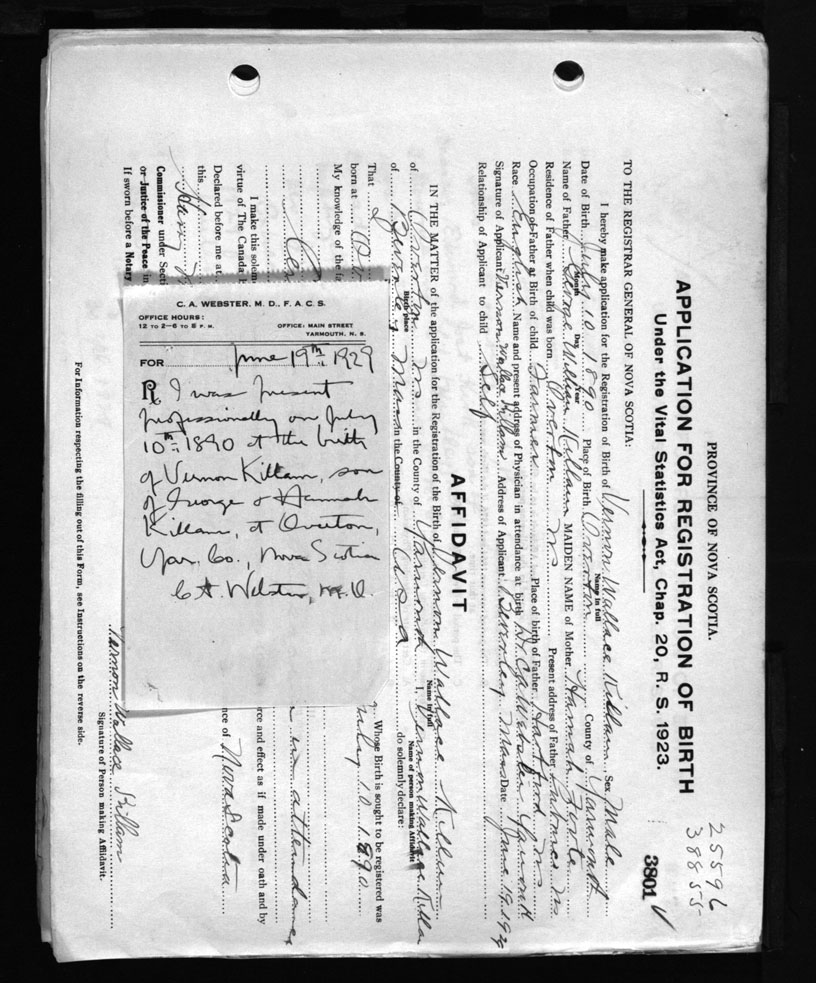 PROVINCE OF NOVA SCOTIA.
APPLICATION FOR REGISTRATION OF BIRTH
Under the Vital Statistics Act, Chap. 20, R. S. 1923.
25596
38855
3801
TO THE REGISTRAR GENERAL OF NOVA SCOTIA:
I hereby make application for the Registration of Birth of Vernon Wallace Killam Sex Male
Name in full
Date of Birth July 10 1890 Place of Birth Overton County of Yarmouth
Month Day Year
Name of Father George William Killam MAIDEN NAME of Mother Hannah
Residence of Father when child was born Overton N S Present address of Father
Occupation of Father at Birth of child Farmer Place of birth of Father Hartford N S
Race English Name and present address of Physician in attendance at birth Dr C A Webster Yarmouth
Signature of Applicant Vernon Wallace Killam Address of Applicant Beverley Mass Date June 19, 1929
Relationship of Applicant to child Self
AFFIDAVIT
IN THE MATTER of the application for the Registration of the Birth of Vernon Wallace Killam
Name in full
of Overton N S in the County of Yarmouth I, Vernon Wallace Killa
Birth place Name of person making Affidavit
of Beverley Mass in the County of U S A do solemnly declare:
That I Whose Birth is sought to be registered was
born at July 10 1890
My knowledge of the fa
in attendance
I make this solem orce and effect as if made under oath and by
virtue of The Canada
Declared before me at nce of Nova Scotia
this
Harry
Commissioner under Secti
or Justice of the Peace in
If sworn before a Notary
Vernon Wallace Killam
Signature of Person making Affidavit.
For Information respecting the filling out of this Form, see Instructions on the reverse side.
C. A. WEBSTER, M. D., F. A. C. S.
OFFICE HOURS:
12 TO 2–6 TO 8 P. M.
OFFICE: MAIN STREET
YARMOUTH, N. S.
FOR June 19th 1929
℞ I was present
professionally on July
10th 1890 at the birth
of Vernon Killam, son
of George & Hannah
Killam, at Overton,
Yar. Co., Nova Scotia
C. A. Webster, M. D.